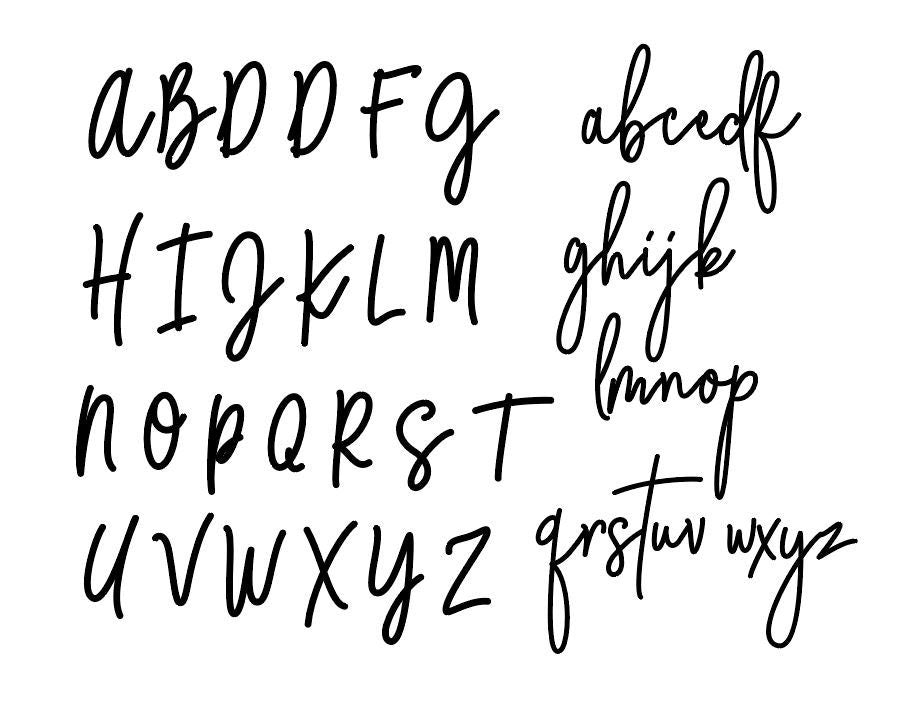 A B D D F G
H I J K L M
N O P Q R S T
U V W X Y Z
abcedf
ghijk
lmnop
qrstuv wxyz